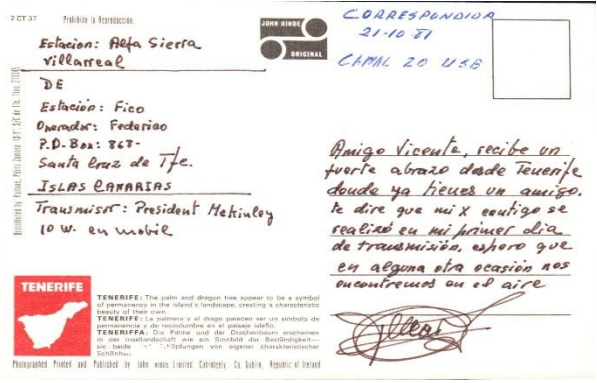 7 CT 37
Prohibida la Reproducción.
JOHN HINDE
ORIGINAL
CORRESPONDIDA
21-10-81
CANAL 20 USB
Estacion: Alfa Sierra
Villarreal
DE
Estación: Fico
Operador: Federico
P.O-Box: 868-
Santa Cruz de Tfe.
ISLAS CANARIAS
Transmisor: President Mckinley
10 W. en mobil
Amigo Vicente, recibe un
fuerte abrazo desde Tenerife
donde ya tienes un amigo.
te dire que mi X contigo se
realizó en mi primer dia
de transmisión, espero que
en alguna otra ocasión nos
encontremos en el aire
Distributed by
TENERIFE
TENERIFE: The palm and dragon tree appear to be a symbol
of permanency in the island's landscape, creating a characteristic
beauty of their own.
TENERIFE: La palmera y el drago parecen ser un símbolo de
permanencia y de reciedumbre en el paisaje isleño.
TENERIFFA: Die Palme und der Drachenbaum erscheinen
in der Insellandschaft wie ein Sinnbild der Beständigkeit—
sie beide von eigener charakteristischer
Schönheit.
Photographed Printed and Published by John Hinde Limited, Cabinteely, Co. Dublin, Republic of Ireland